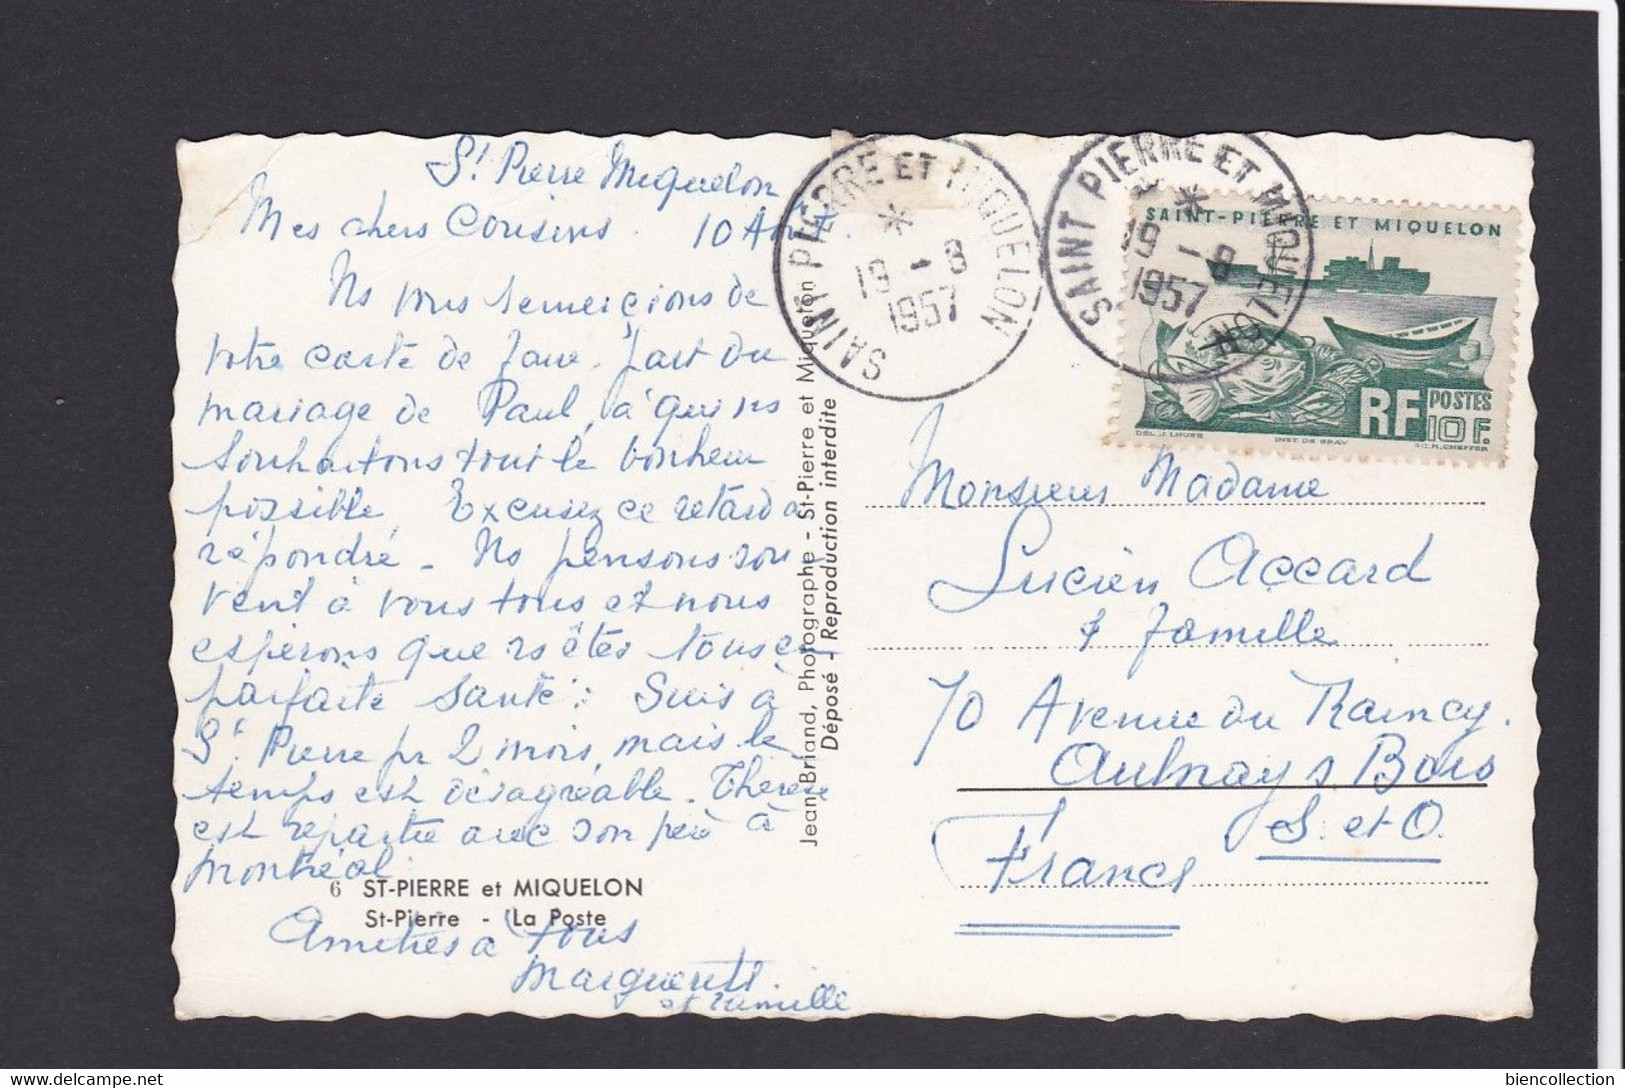 St Pierre Miquelon
Mes chers Cousins. 10 Août.
Ns vous remercions de
votre carte de faire-part du
mariage de Paul, à qui ns
souhaitons tout le bonheur
possible. Excusez ce retard à
répondre - Ns pensons sou
vent à vous tous et nous
espérons que vs êtes tous en
parfaite santé. Suis à
St Pierre pr 2 mois, mais le
temps est désagréable. Thérèse
est repartie avec son père à
Montréal.
6 ST-PIERRE et MIQUELON
St-Pierre - La Poste
Amitiés à tous
Marguerite
et famille
Jean Briand, Photographe - St-Pierre et Miquelon
Déposé - Reproduction interdite
SAINT PIERRE ET MIQUELON
19 - 8
1957
SAINT PIERRE ET MIQUELON
19 - 8
1957
SAINT-PIERRE ET MIQUELON
RF POSTES
10F.
INST DE GRAV
Monsieur Madame
Lucien Accard
& famille
70 Avenue du Raincy.
Aulnay s Bois
S. et O.
France
biencollection